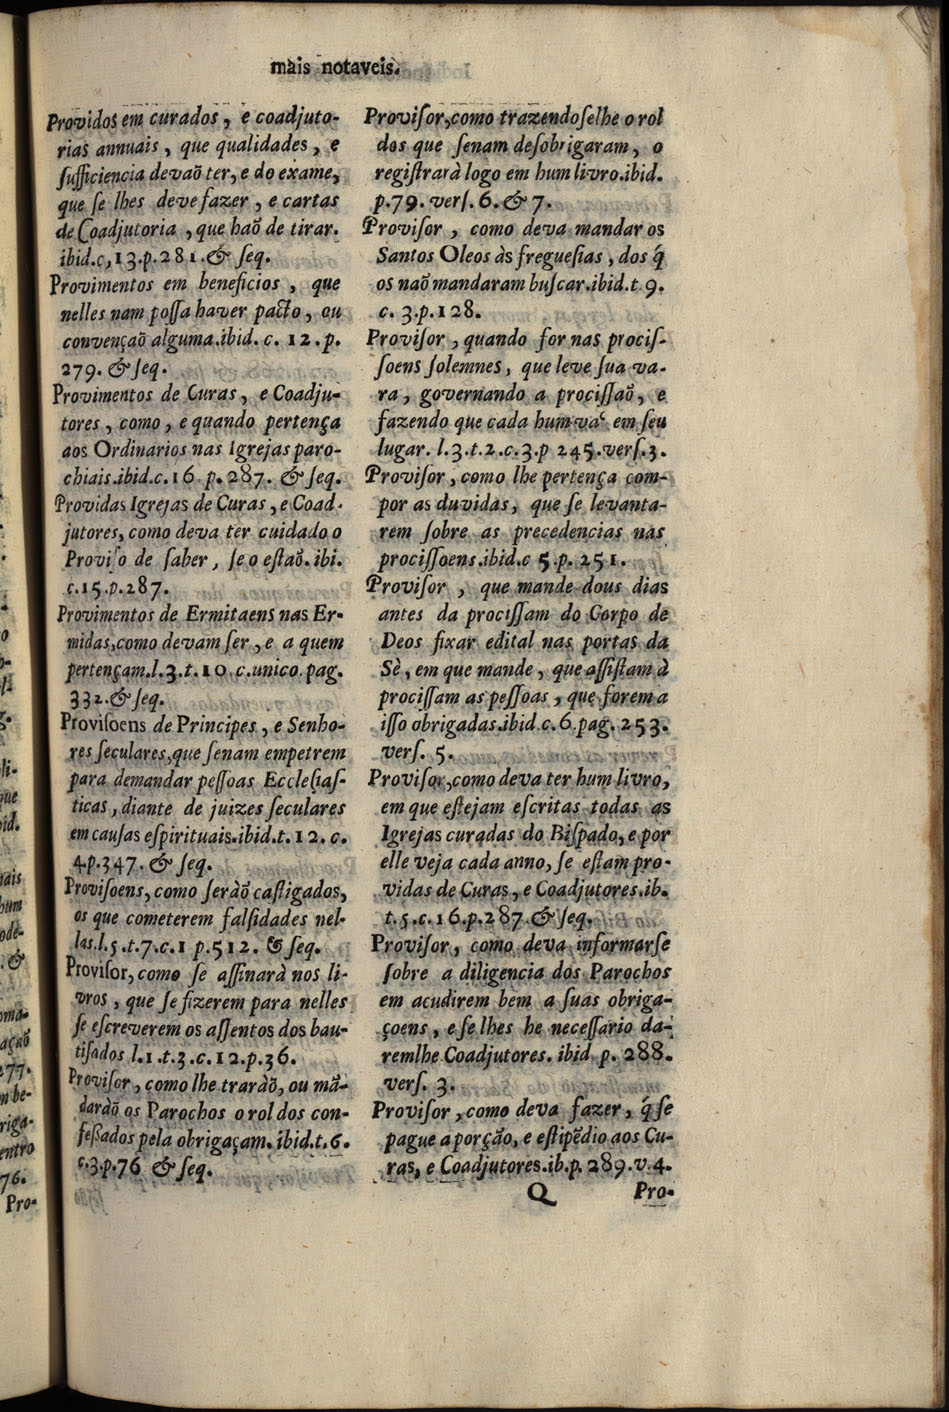 mais notaveis.
Providos em curados, e coadjuto-
rias annuais, que qualidades, e
ſufficiencia devaõ ter, e do exame,
que ſe lhes deve fazer, e cartas
de Coadjutoria, que haõ de tirar.
ibid.c,13.p.281.& ſeq.
Provimentos em beneficios, que
nelles nam poſſa haver pacto, ou
convençaõ alguma.ibid. c. 12.p.
279. & ſeq.
Provimentos de Curas, e Coadju-
tores, como, e quando pertença
aos Ordinarios nas Igrejas paro-
chiais.ibid.c.16 p.287. & ſeq.
Providas Igrejas de Curas, e Coad-
jutores, como deva ter cuidado o
Proviſo de ſaber, ſe o eſtaõ. ibi.
c.15.p.287.
Provimentos de Ermitaens nas Er-
midas,como devam ſer, e a quem
pertençam.l.3.t.10.c.unico.pag.
332.& ſeq.
Proviſoens de Principes, e Senho-
res ſeculares,que ſenam empetrem
para demandar peſſoas Eccleſiaſ-
ticas, diante de juizes ſeculares
em cauſas eſpirituais.ibid.t.12. c.
4.p.347. & ſeq.
Proviſoens, como ſeràõ caſtigados,
os que cometerem falſidades nel-
las.l.5.t.7.c.1 p.512. & ſeq.
Proviſor, como ſe aſſinarà nos li-
vros, que ſe fizerem para nelles
ſe eſcreverem os aſſentos dos bau-
tiſados l.1.t.3.c.12.p.36.
Proviſor, como lhe traràõ, ou mã-
daràõ os Parochos o rol dos con-
feſſados pela obrigaçam.ibid.t.6.
c.3.p.76 & ſeq.
Proviſor,como trazendoſelhe o rol
dos que ſenam deſobrigaram, o
regiſtrarà logo em hum livro.ibid.
p.79. verſ.6. & 7.
Proviſor, como deva mandar os
Santos Oleos às fregueſias, dos q́
os naõ mandaram buſcar.ibid.t 9.
c. 3.p.128.
Proviſor, quando for nas prociſ-
ſoens ſolemnes, que leve ſua va-
ra, governando a prociſſaõ, e
fazendo que cada hum và em ſeu
lugar. l.3.t.2.c.3.p 245.verſ.3.
Proviſor, como lhe pertença com-
por as duvidas, que ſe levanta-
rem ſobre as precedencias nas
prociſſoens.ibid.c 5.p.251.
Proviſor, que mande dous dias
antes da prociſſam do Corpo de
Deos fixar edital nas portas da
Sè, em que mande, que aſſiſtam à
prociſſam as peſſoas, que forem a
iſſo obrigadas.ibid.c.6.pag.253.
verſ. 5.
Proviſor,como deva ter hum livro,
em que eſtejam eſcritas todas as
Igrejas curadas do Biſpado, e por
elle veja cada anno, ſe eſtam pro-
vidas de Curas, e Coadjutores.ib.
t.5.c.16.p.287.& ſeq.
Proviſor, como deva informarſe
ſobre a diligencia dos Parochos
em acudirem bem a ſuas obriga-
çoens, e ſe lhes he neceſſario da-
remlhe Coadjutores. ibid. p. 288.
verſ. 3.
Proviſor, como deva fazer, q́ ſe
pague a porçaõ, e eſtipẽdio aos Cu-
ras, e Coadjutores.ib.p.289.v.4.
Q Pro-